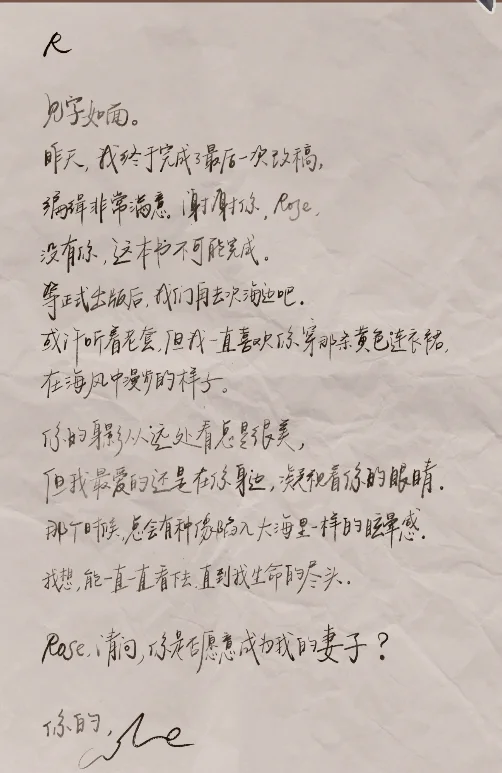 R
见字如面。
昨天,我终于完成了最后一次改稿,
编辑非常满意。谢谢你,Rose,
没有你,这本书不可能完成。
等正式出版后,我们再去次海边吧.
或许听着老套,但我一直喜欢你穿那条黄色连衣裙,
在海风中漫步的样子。
你的身影从远处看总是很美,
但我最爱的还是在你身边,凝视着你的眼睛.
那个时候,总会有种像陷入大海里一样的眩晕感.
我想,能一直一直看下去,直到我生命的尽头.
Rose,请问,你是否愿意成为我的妻子?
你的,